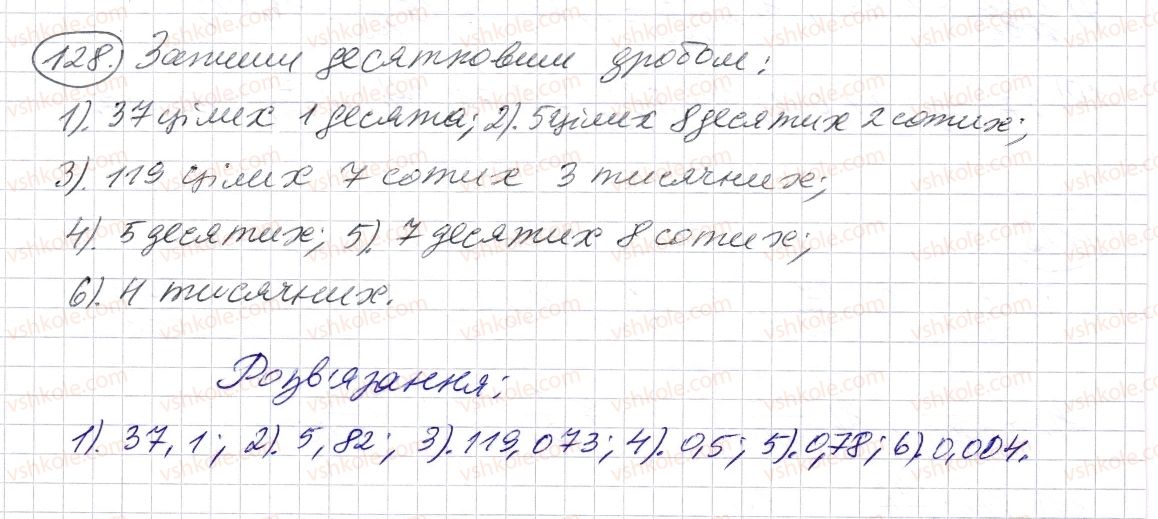 128. Запиши десятковим дробом:
1). 37 цілих 1 десята; 2). 5 цілих 8 десятих 2 сотих;
3). 119 цілих 7 сотих 3 тисячних;
4). 5 десятих; 5). 7 десятих 8 сотих;
6). 4 тисячних.
Розв'язання:
1). 37,1; 2). 5,82; 3). 119,073; 4). 0,5; 5). 0,78; 6). 0,004.